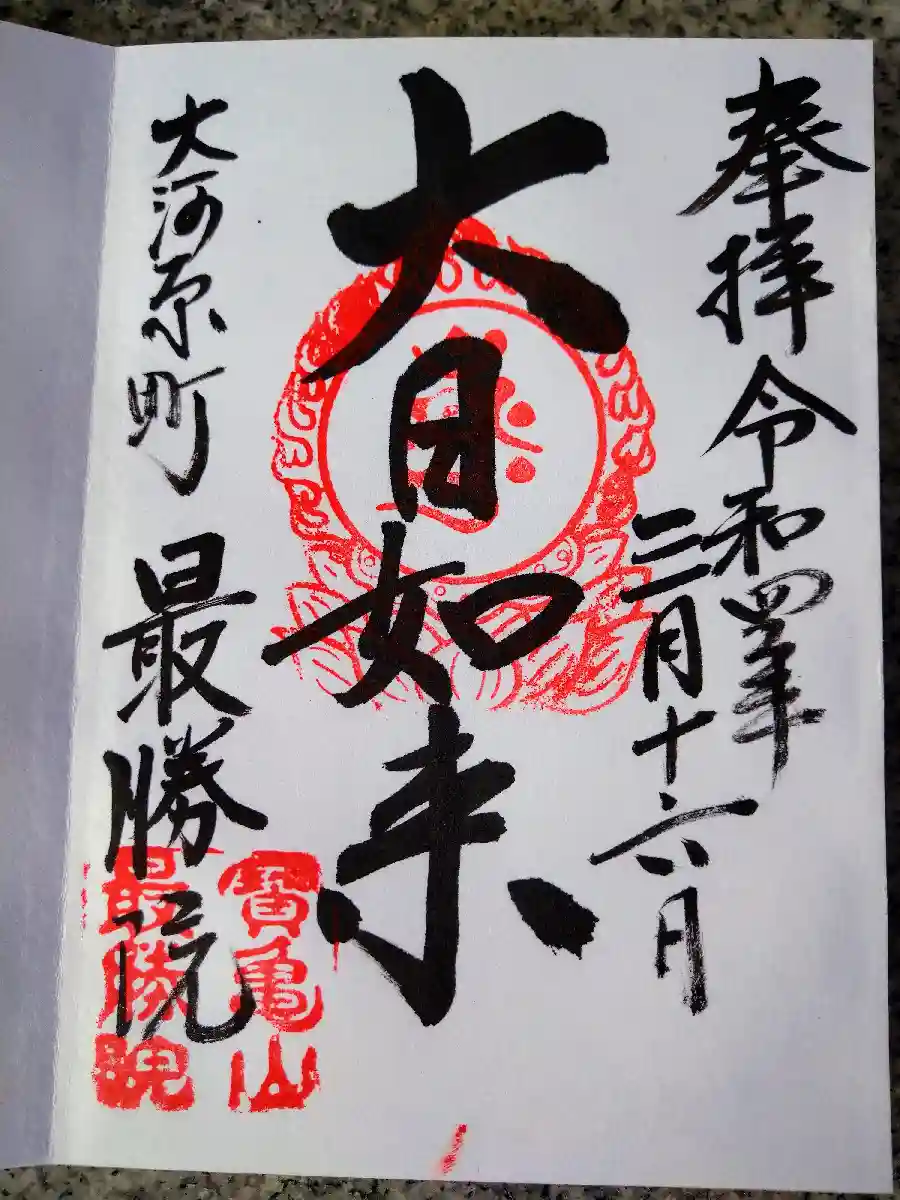 奉拝 令和四年
三月十六月
大日如来
大河原町 最勝院
寳亀山
最勝院